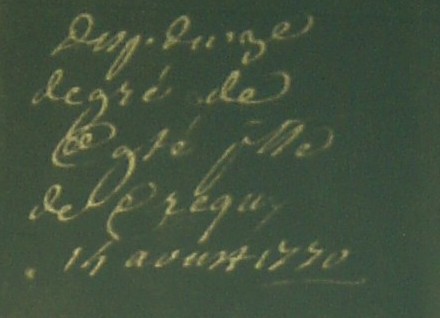 Disp. du 3e
degré de
Cté fille
de Crequy
. 14 aoust 1770